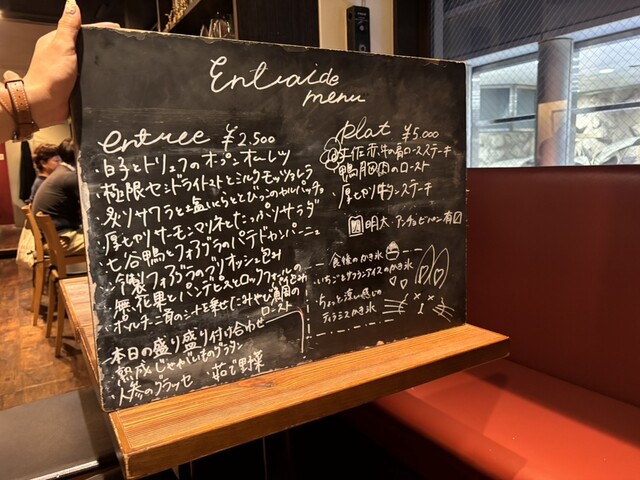 Entraide
menu
entree ¥2.500
・白子とトリュフのオープンオムレツ
・極限セミドライトマトとミルクモッツァレラ
・炙りサワラと
・厚切りサーモンマリネとたっぷりサラダ
・七谷鴨とフォアグラのパテドカンパーニュ
・フォアグラの ブリオッシュ包み
・無花果とパンデピスとロックフォールの
・ポルチーニ茸のシートを乗せた 魚の
ロースト
本日の盛り盛り付け合わせ
・熟成じゃがいものグラタン
・人参のグラッセ ・茹で野菜
Plat ¥5.000
土佐赤牛の肩ロースステーキ
鴨胸肉のロースト
厚切り牛タンステーキ
明太・アンチョビ 有
食後のかき氷
・いちごとブランデイスのかき氷
・ちょっと涼い感じの
ティラミスかき氷